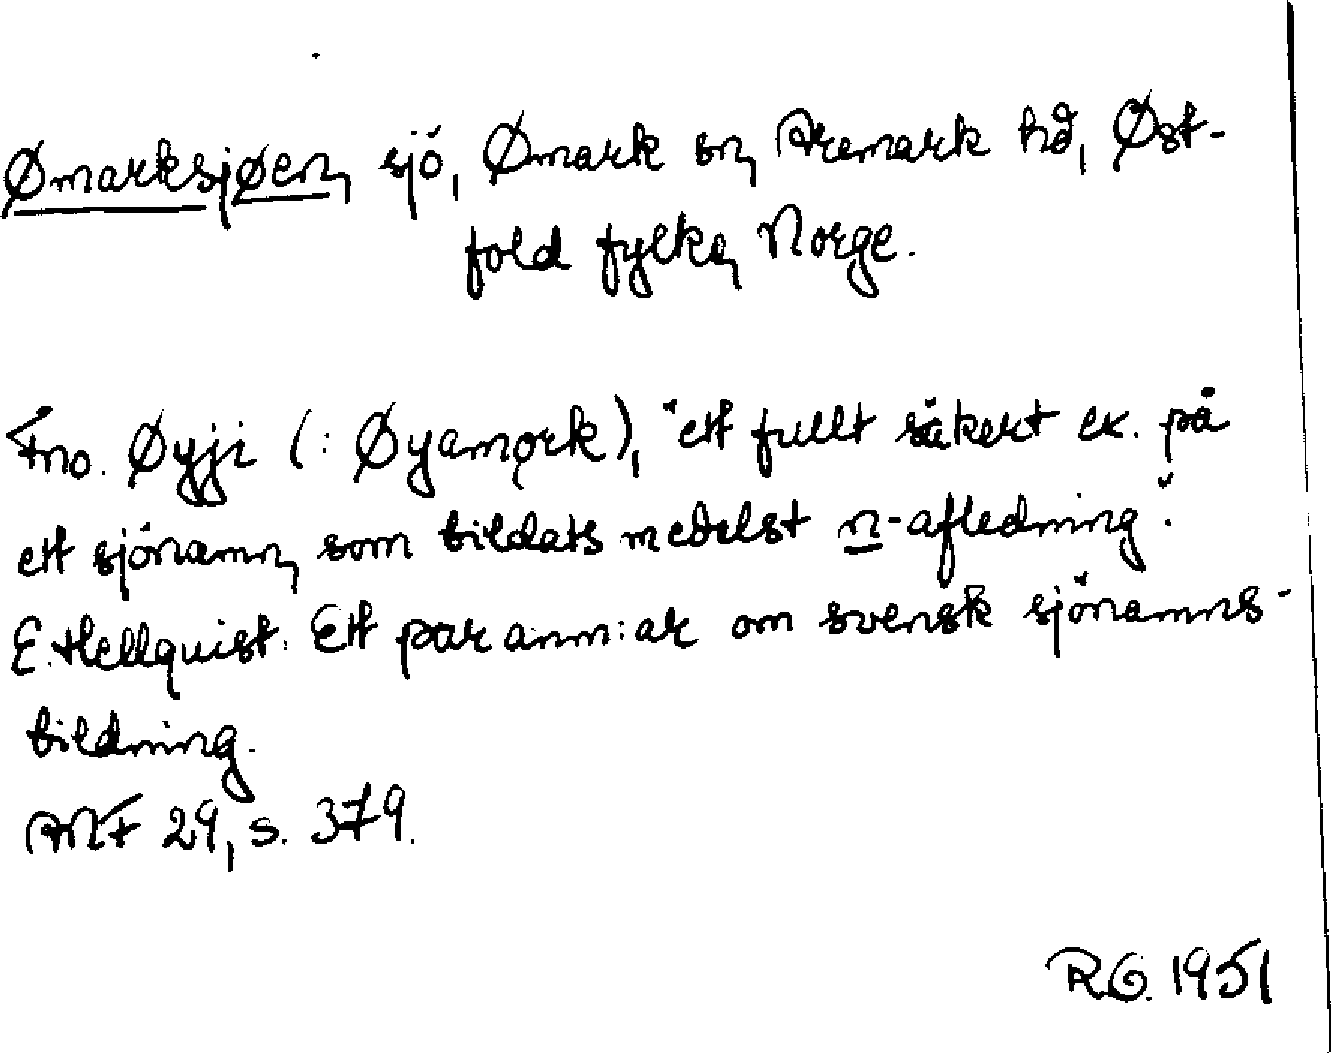 Ømarksjøen, sjö, Ømark sn, Aremark hd, Øst-
fold fylke, Norge.
Fno. Øyji (: Øyamǫrk), "ett fullt säkert ex. på
ett sjönamn, som bildats medelst n-afledning".
E. Hellquist. Ett par anm:ar om svensk sjönamns-
bildning.
ANF 29, s. 379.
R.G. 1951